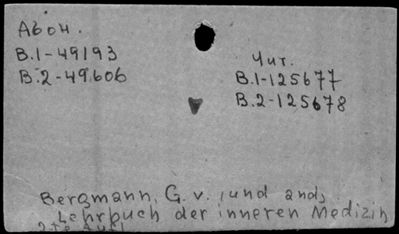 Абон.
В.1-49193
В.2-49606
Чит.
В.1-125677
В.2-125678
Bergmann, G. v., und and,
Lehrbuch der inneren Medizin
2te Aufl